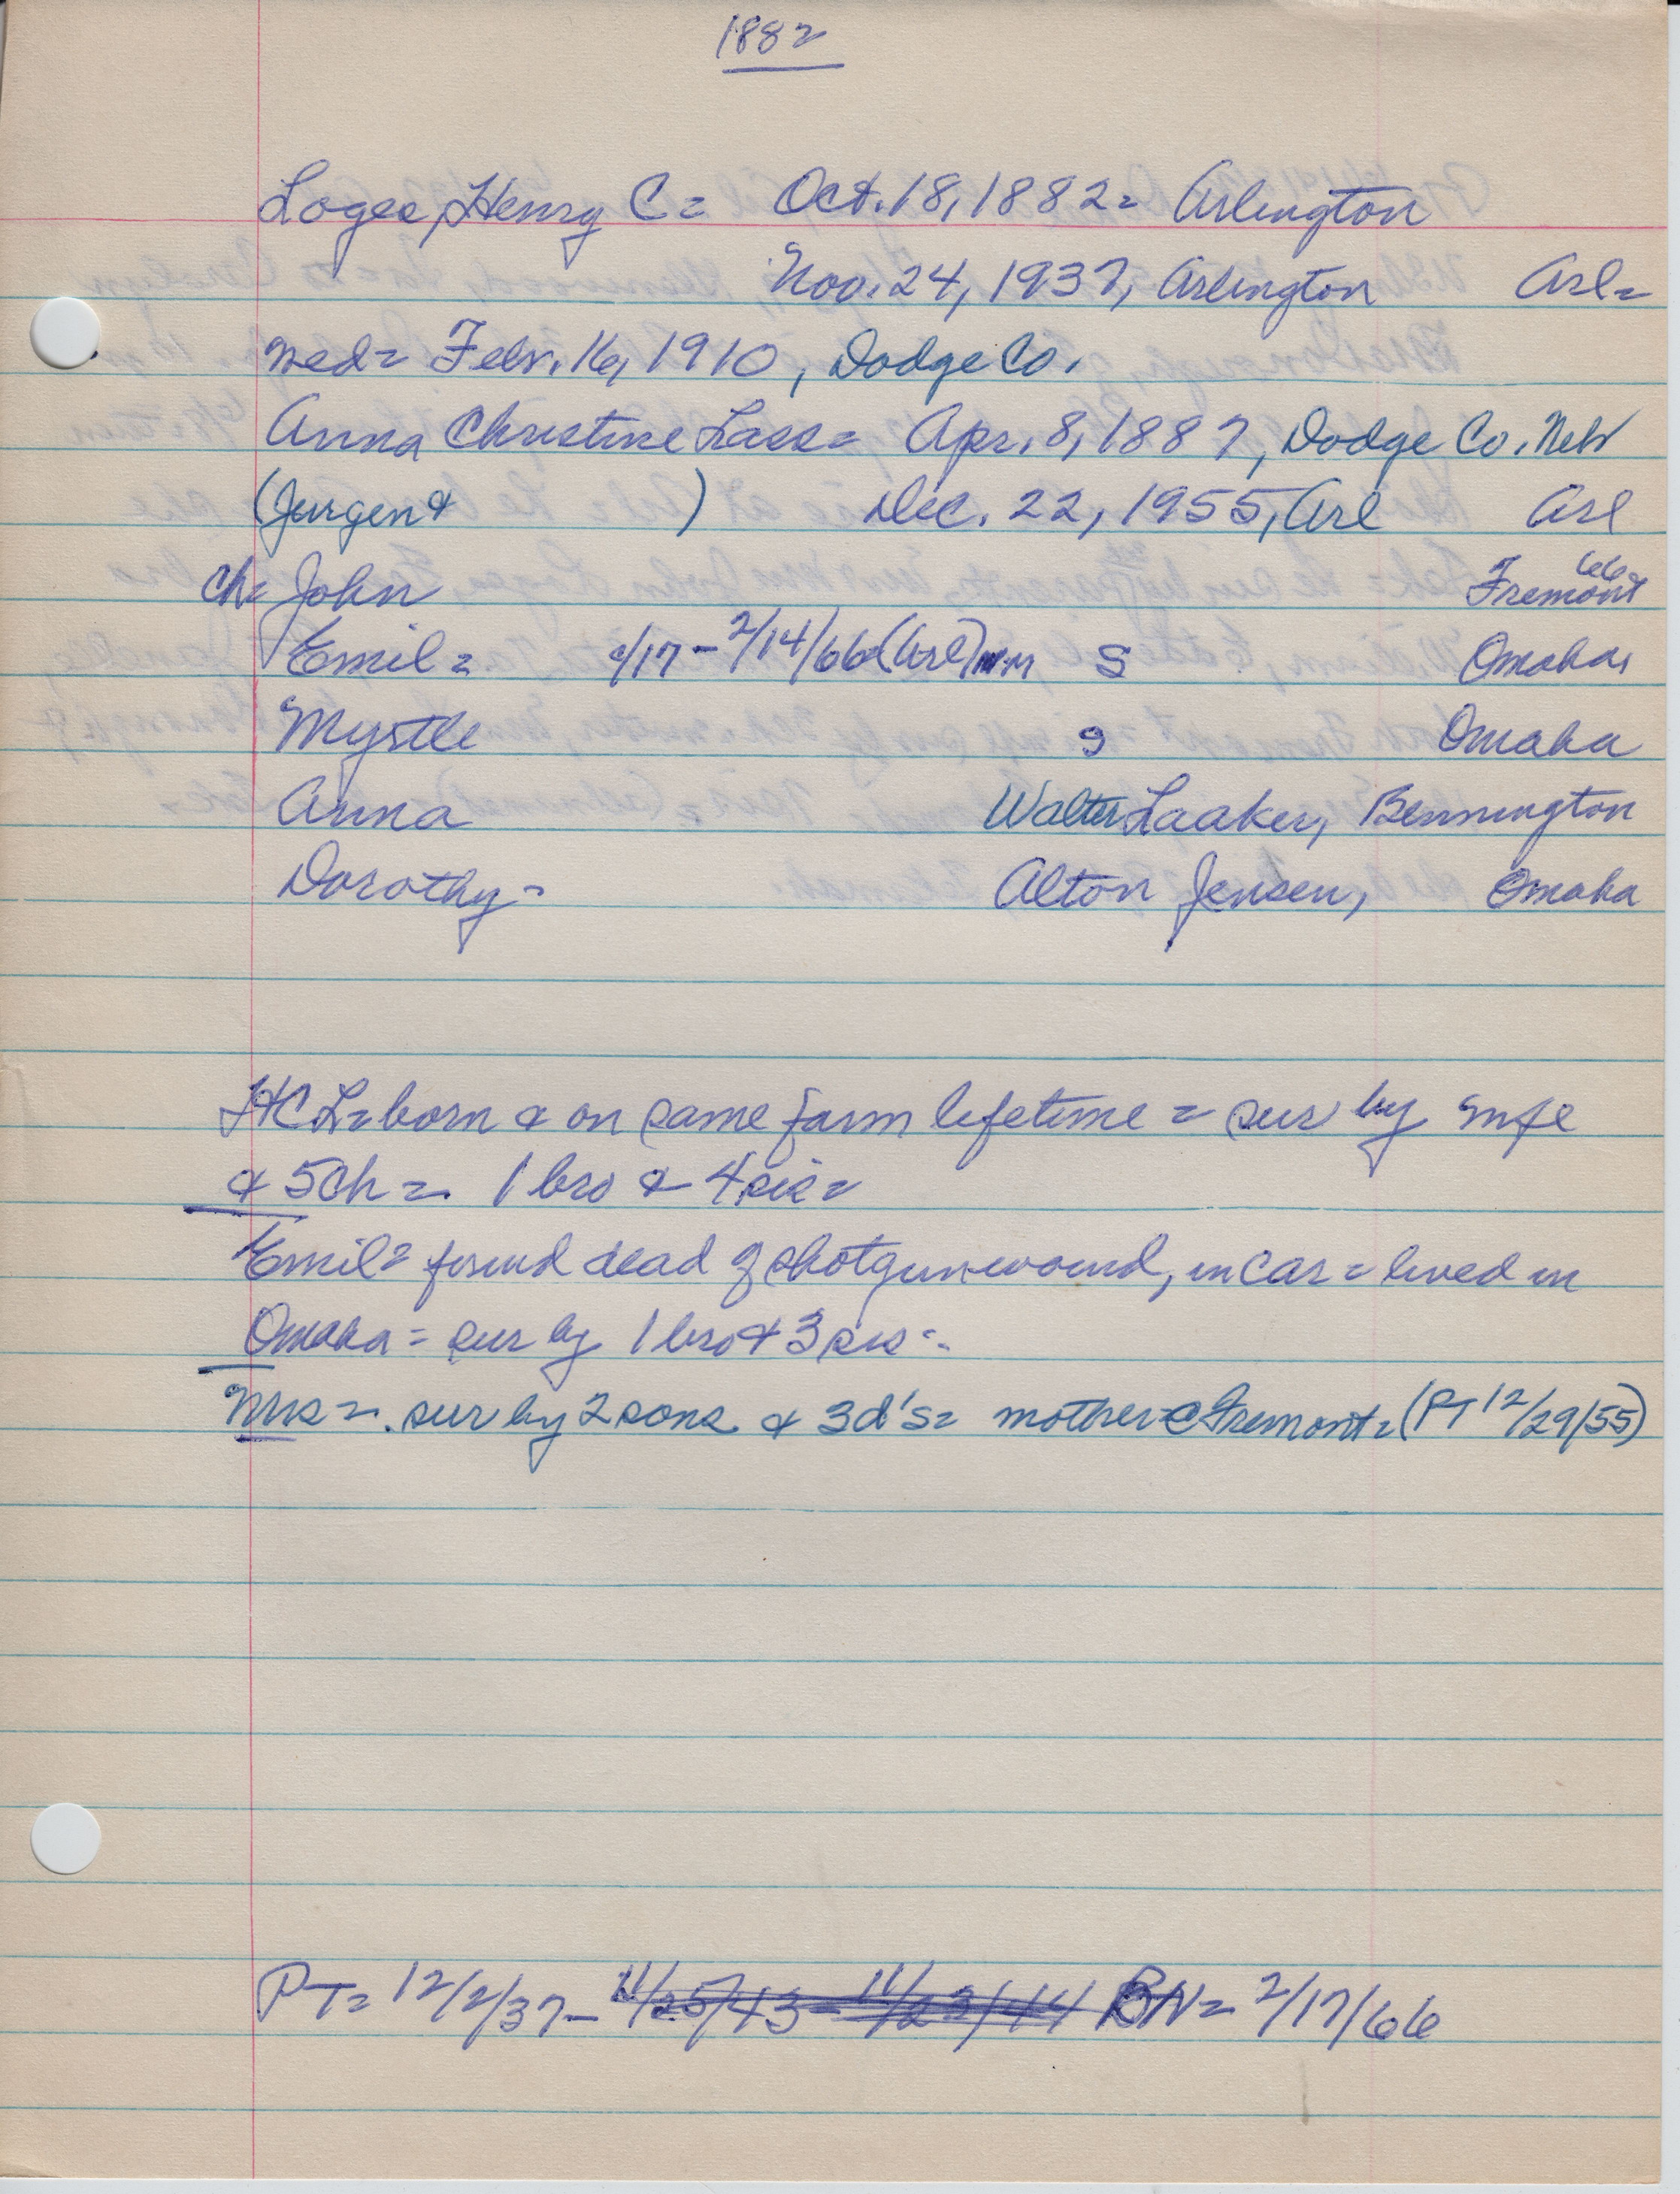 1882
Logee, Henry C = Oct. 18, 1882 = Arlington
Nov. 24, 1937, Arlington Arl =
Wed = Febr. 16, 1910, Dodge Co.
Anna Christine Lass = Apr. 8, 1887, Dodge Co. Nebr
(Jurgen & ) Dec. 22, 1955, Arl Arl
ch = John 66 = Fremont
Emil = c/17 - 2/14/66 (Arl) S Omaha,
Myrtle s Omaha
Anna Walter Laaker, Bennington
Dorothy = Alton Jensen, Omaha
HCL = born & on same farm lifetime = sur by wife
& 5 ch = 1 bro & 4 sis =
Emil = found dead of shotgun wound, in car = lived in
Omaha = sur by 1 bro & 3 sis =
Mrs = sur by 2 sons & 3 d's = mother @ Fremont = (PT 12/29/55)
PT = 12/2/37 - 11/25/43 = 11/23/44 BN = 2/17/66